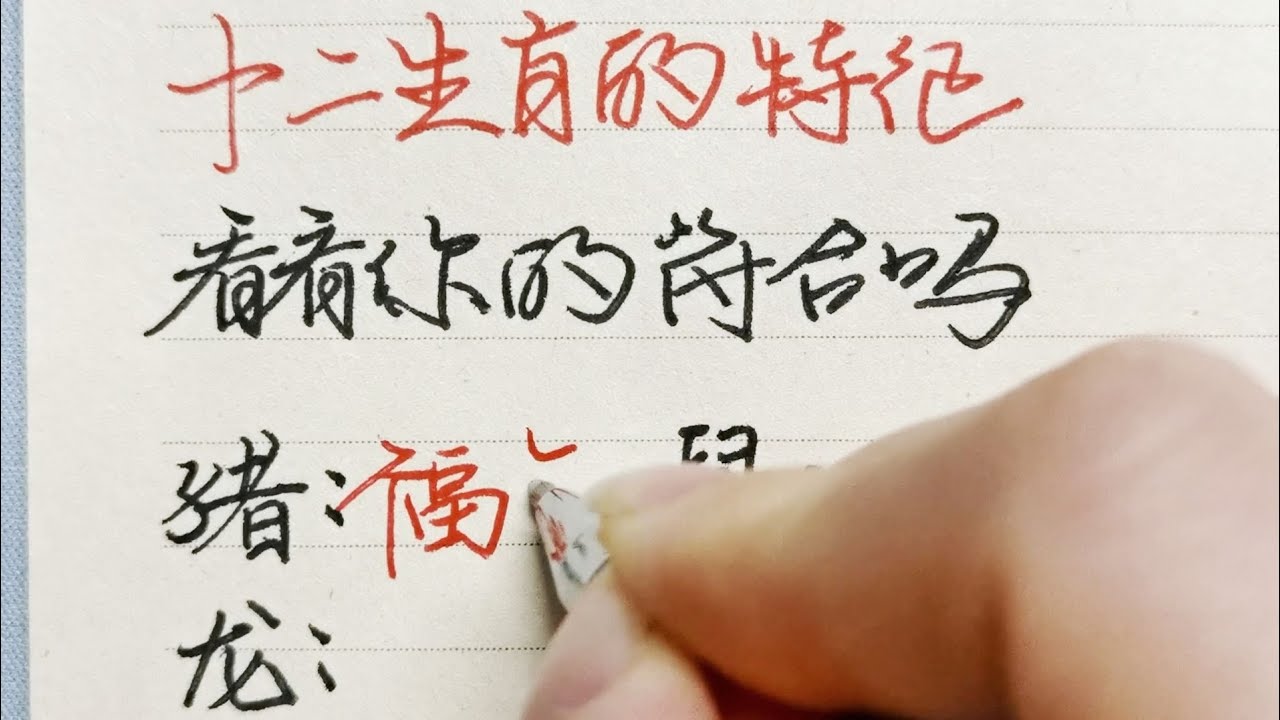 十二生肖的特征
看看你的符合吗
豬：福 鼠
龙：